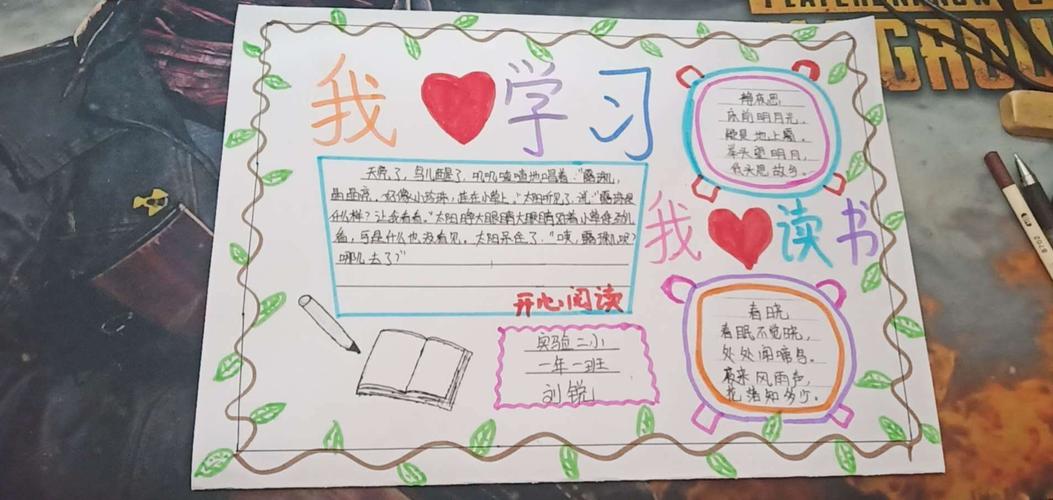 我学习
静夜思
床前明月光，
疑是地上霜。
举头望明月，
低头思故乡。
天亮了，鸟儿醒了，叽叽喳喳地唱着："露珠儿，
晶晶亮，好像小珍珠，挂在小草上。"太阳听见了，说："露珠是
什么样？让我看看。"太阳睁大眼睛大眼睛对着小草使劲儿
看，可是什么也没看见。太阳呆住了，"咦，露珠儿呢？
哪儿去了？"
开心阅读
我读书
春晓
春眠不觉晓，
处处闻啼鸟。
夜来风雨声，
花落知多少。
实验二小
一年一班
刘锐